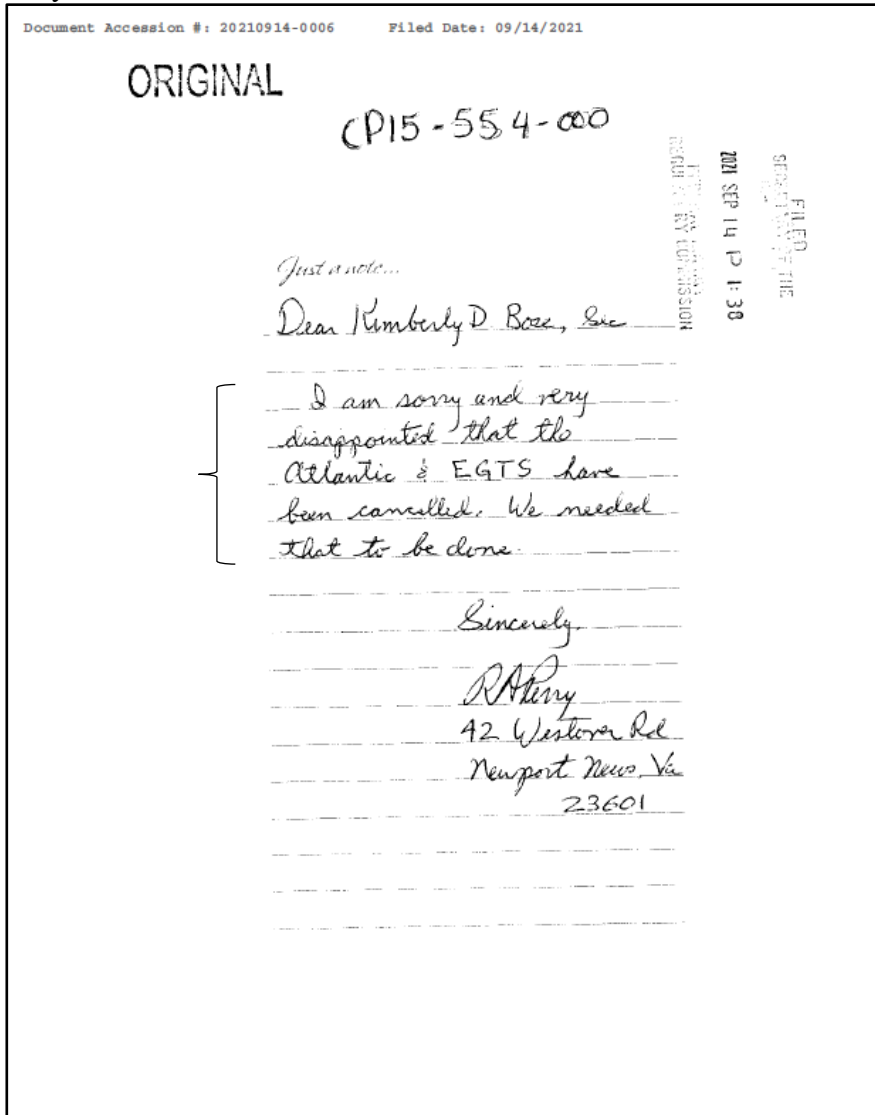 Document Accession #: 20210914-0006 Filed Date: 09/14/2021
ORIGINAL
CP15-554-000
FILED
2021 SEP 14 P 1:38
COMMISSION
Just a note...
Dear Kimberly D. Bose, Sec
I am sorry and very
disappointed that the
Atlantic & EGTS have
been cancelled. We needed
that to be done.
Sincerely,
RA Perry
42 Westover Rd
Newport News, Va
23601